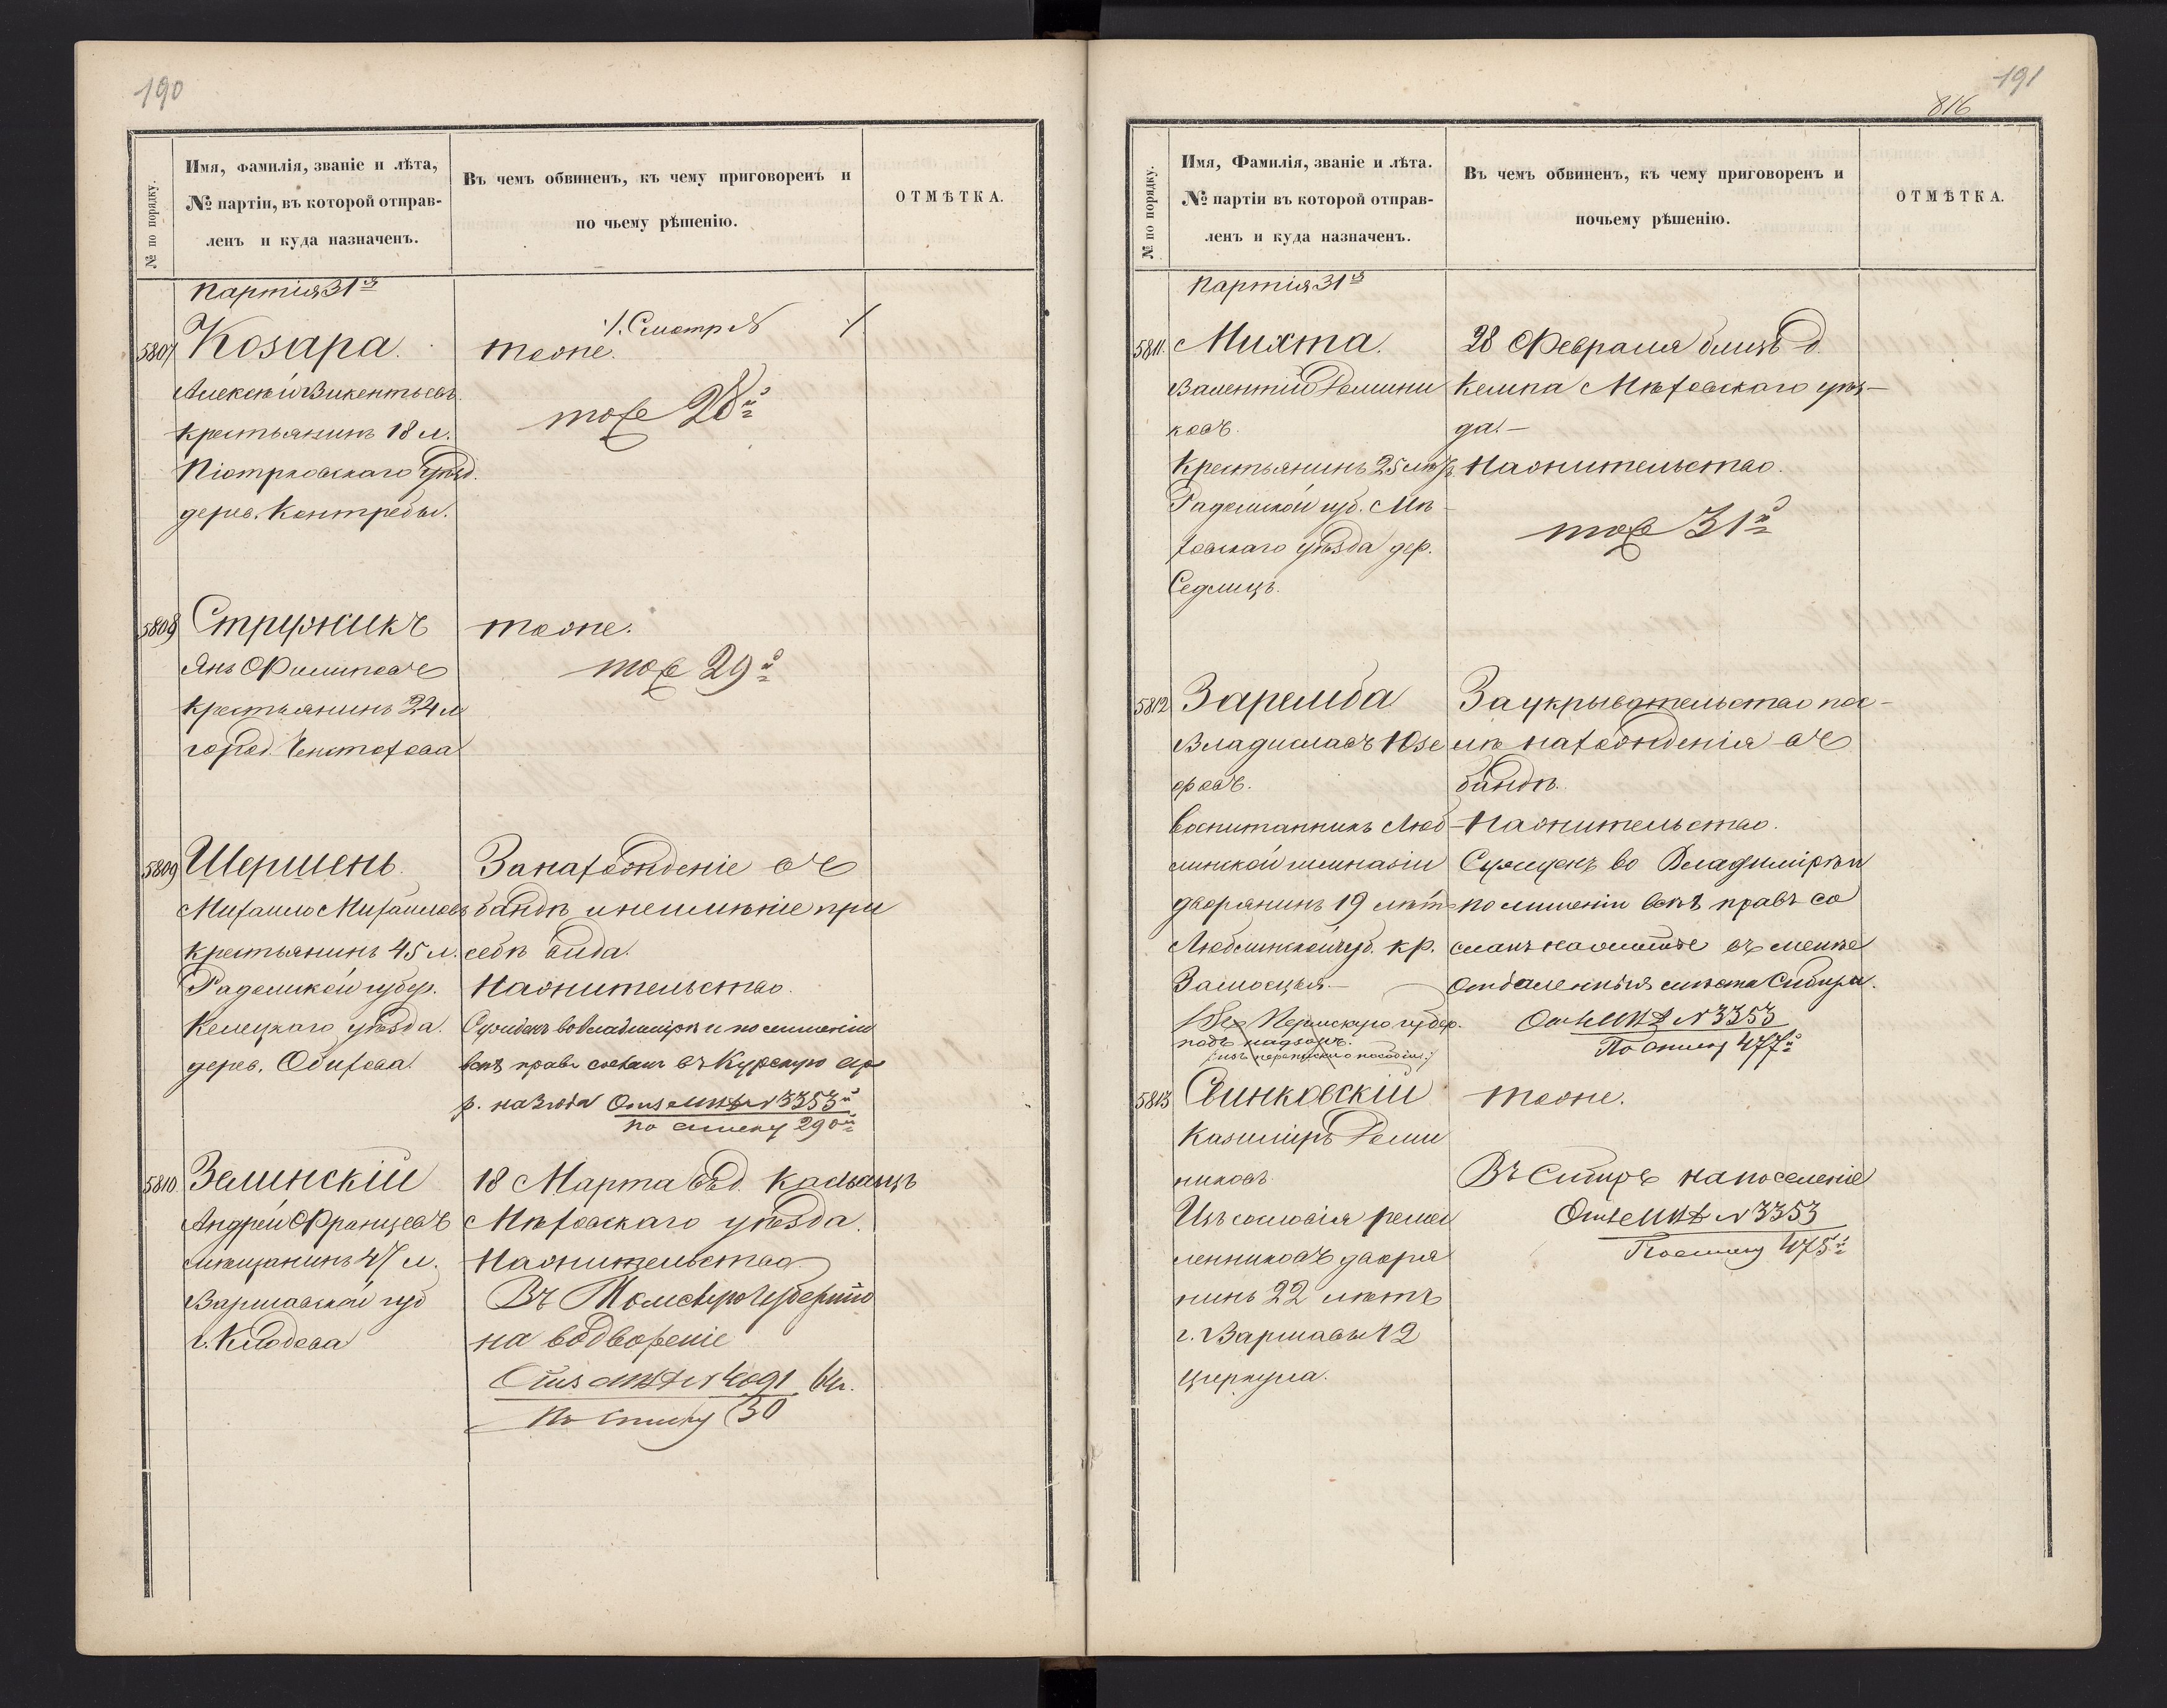 190
№ по порядку.
Имя, фамилія, званіе и лѣта,
№ партіи, въ которой отправ-
ленъ и куда назначенъ.
Въ чемъ обвиненъ, къ чему приговоренъ и
по чьему рѣшенію.
ОТМѢТКА.
Партія 31я
5807 Козара.
Алексѣй Викентьевъ
Крестьянинъ 18 л.
Піотрковскаго уѣзд.
дерев. Контребы.
Смотр №
тоже.
тоже 28й
5808 Стружикъ
Янъ Филиповъ
Крестьянинъ 24 л
город. Ченстохова
тоже.
тоже 29й
5809 Шершень.
Михаило Михайловъ
Крестьянинъ 45 л.
Радомской губер.
Келецкаго уѣзда.
дерев. Обихова.
За нахожденіе въ
бандѣ и неимѣніе при
себѣ вида.
На жительство.
Сужденъ во Владимірѣ и по лишеніи
всѣхъ правъ сосланъ въ Курскую ар
р. на 3 года № 3353й
по списку 290й
5810 Зелинскій
Андрей Францевъ
Мѣщанинъ 47 л.
Варшавской губ
г. Клодова
18 Марта въ д.
Мѣховскаго уѣзда.
На жительство.
Въ Томскую Губернію
на водвореніе
№ 4091 64г.
По списку 50
191
816
№ по порядку.
Имя, Фамилія, званіе и лѣта.
№ партіи въ которой отправ-
ленъ и куда назначенъ.
Въ чемъ обвиненъ, къ чему приговоренъ и
почьему рѣшенію.
ОТМѢТКА.
Партія 31я
5811. Михта.
Валентій Домини
ковъ.
Крестьянинъ 25 лѣтъ
Радомской губ. Мѣ
ховскаго уѣзда дер.
Седлицъ.
28 Февраля близъ д.
Кемпа Мѣховскаго уѣз-
да.-
На жительство.
тоже 31й
5812 Заремба
Владиславъ Юзе
фовъ.
Воспитанникъ Люб-
линской гимназіи
дворянинъ 19 лѣтъ
Люблинской губ. кр.
Замосцья.
Въ Пермскую губер.
подъ надзоръ.
За укрывательство пос-
лѣ нахожденія въ
бандѣ.
На жительство.
Сужденъ во Владимірѣ и
по лишеніи всѣхъ правъ со
сланъ на житье въ менѣе
отдаленныя мѣста Сибири.
№ 3353
По списку 477й
5813 Свинковскій
Казиміръ Доми
никовъ.
Изъ сословія ремес
ленниковъ дворя
нинъ 22 лѣтъ
г. Варшавы 12
циркула.
тоже.
Въ Сибирь на поселеніе
№ 3353
По списку 475й